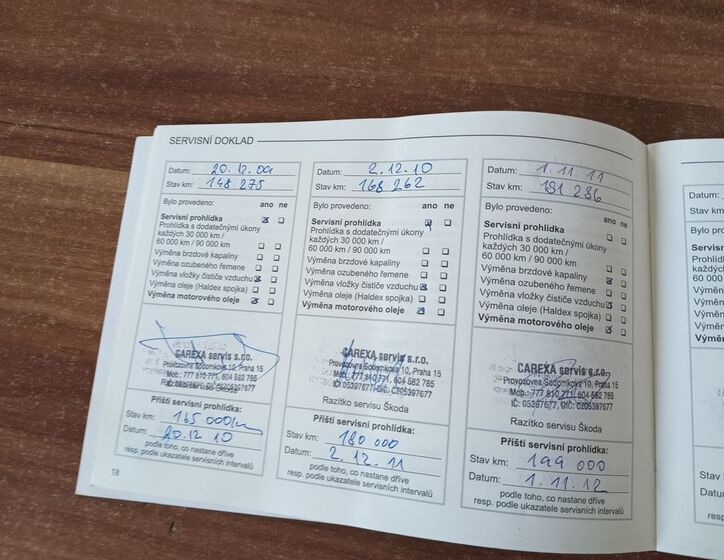 SERVISNÍ DOKLAD
Datum: 20.12.09
Stav km: 148 275
Bylo provedeno: ano ne
Servisní prohlídka
Prohlídka s dodatečnými úkony
každých 30 000 km /
60 000 km / 90 000 km
Výměna brzdové kapaliny
Výměna ozubeného řemene
Výměna vložky čističe vzduchu
Výměna oleje (Haldex spojka)
Výměna motorového oleje
CAREXA servis s.r.o.
Provozovna Sodomkova 10, Praha 15
Mob.: 777 810 771, 604 582 785
IČ: 05397677, DIČ: CZ05397677
Razítko servisu Škoda
Příští servisní prohlídka:
Stav km: 165 000km
Datum: 20.12 10
podle toho, co nastane dříve
resp. podle ukazatele servisních intervalů
18
Datum: 2.12.10
Stav km: 168 262
Bylo provedeno: ano ne
Servisní prohlídka
Prohlídka s dodatečnými úkony
každých 30 000 km /
60 000 km / 90 000 km
Výměna brzdové kapaliny
Výměna ozubeného řemene
Výměna vložky čističe vzduchu
Výměna oleje (Haldex spojka)
Výměna motorového oleje
CAREXA servis s.r.o.
Provozovna Sodomkova 10, Praha 15
Mob.: 777 810 771, 604 582 785
IČ: 05397677, DIČ: CZ05397677
Razítko servisu Škoda
Příští servisní prohlídka:
Stav km: 180 000
Datum: 2.12.11
podle toho, co nastane dříve
resp. podle ukazatele servisních intervalů
Datum: 1.11.11
Stav km: 181 286
Bylo provedeno: ano ne
Servisní prohlídka
Prohlídka s dodatečnými úkony
každých 30 000 km /
60 000 km / 90 000 km
Výměna brzdové kapaliny
Výměna ozubeného řemene
Výměna vložky čističe vzduchu
Výměna oleje (Haldex spojka)
Výměna motorového oleje
CAREXA servis s.r.o.
Provozovna Sodomkova 10, Praha 15
Mob.: 777 810 771, 604 582 785
IČ: 05397677, DIČ: CZ05397677
Razítko servisu Škoda
Příští servisní prohlídka:
Stav km: 199 000
Datum: 1.11.12
podle toho, co nastane dříve
resp. podle ukazatele servisních intervalů
Datum:
Stav km:
Bylo pro
Servisní
Prohlídka
každých
60 000
Výměna
Výměna
Výměna
Výměna
Výměn
Stav
Datu
resp